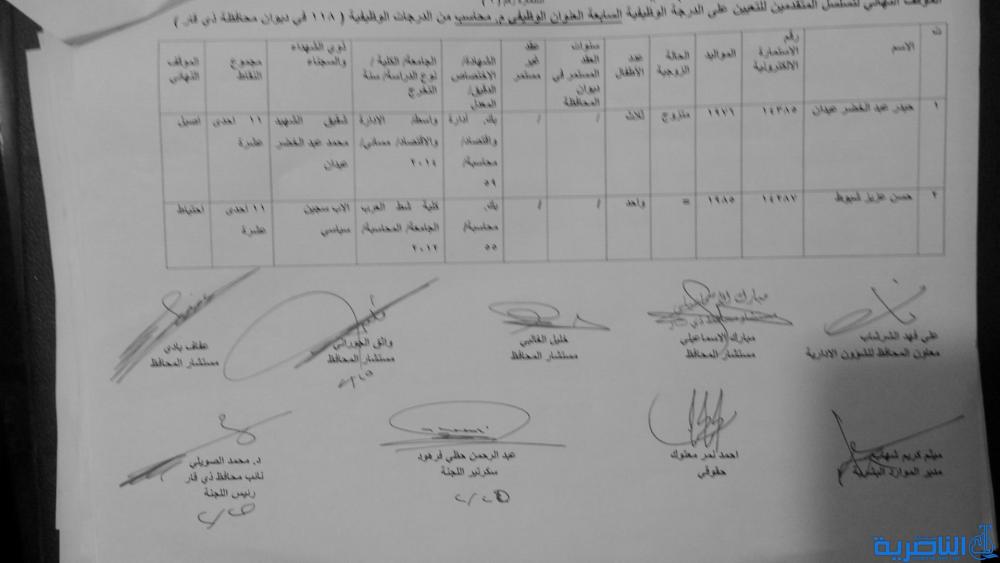 الموقف النهائي لتسلسل المتقدمين للتعيين على الدرجة الوظيفية السابعة العنوان الوظيفي م. محاسب من الدرجات الوظيفية ( ١١٨ في ديوان محافظة ذي قار )
ت | الاسم | رقم الاستمارة الالكترونية | المواليد | الحالة الزوجية | عدد الأطفال | سنوات العقد المستمر في ديوان المحافظة | عقد غير مستمر | الشهادة/ الاختصاص الدقيق/ المعدل | الجامعة/ الكلية / نوع الدراسة/ سنة التخرج | ذوي الشهداء والسجناء | مجموع النقاط | الموقف النهائي
١ | حيدر عبد الخضر عيدان | ١٤٣٨٥ | ١٩٧٦ | متزوج | ثلاث | / | / | بك. أدارة واقتصاد/ محاسبة/ ٥٩ | واسط/ الادارة والاقتصاد/ مسائي/ ٢٠١٤ | شقيق الشهيد محمد عبد الخضر عيدان | ١١ احدى عشرة | اصيل
٢ | حسن عزيز | ١٤٢٨٧ | ١٩٨٥ | = | واحد | / | / | بك. محاسبة/ ٥٥ | كلية شط العرب الجامعة/ المحاسبة/ ٢٠١٢ | الاب سجين سياسي | ١١ احدى عشرة | احتياط
علي فهد الشرشاب
معاون المحافظ للشؤون الادارية
مبارك الاسماعيلي
مستشار المحافظ
خليل الغالبي
مستشار المحافظ
واثق الجوراني
مستشار المحافظ
عفاف بادي
مستشار المحافظ
ميثم كريم
مدير الموارد البشرية
احمد نمر معلوك
حقوقي
عبد الرحمن حظي فرهود
سكرتير اللجنة
د. محمد الصويلي
نائب محافظ ذي قار
رئيس اللجنة
الناصرية
www.nasiriyah.org